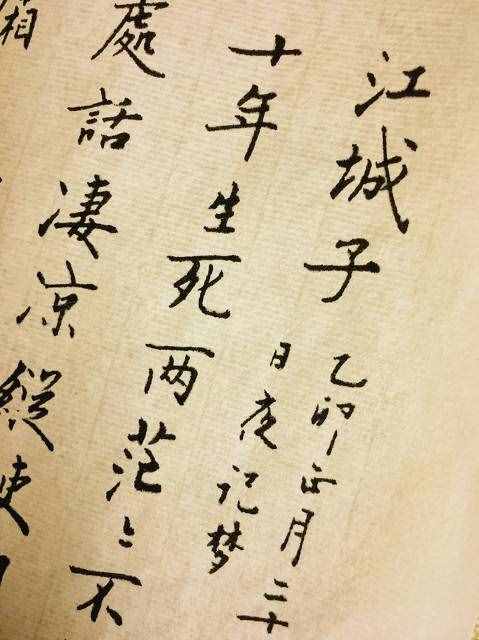 江城子
乙卯正月二十
日夜记梦
十年生死两茫〻不
處話凄凉縱使